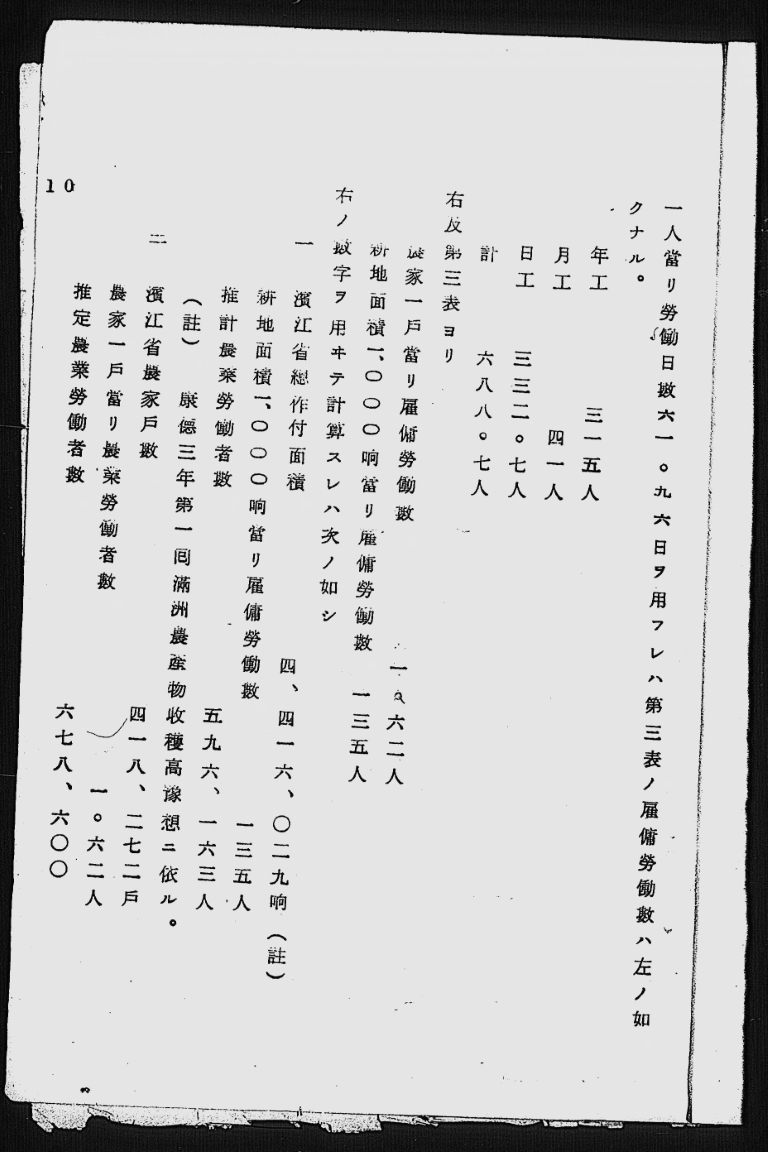 一人當リ勞働日數六一。九六日ヲ用フレハ第三表ノ雇傭勞働數ハ左ノ如
クナル。
年工 三一五人
月工 四一人
日工 三三二。七人
計 六八八。七人
右反第三表ヨリ
農家一戶當リ雇傭勞働數 一。六二人
耕地面積一、〇〇〇晌當リ雇傭勞働數 一三五人
右ノ數字ヲ用ヰテ計算スレハ次ノ如シ
一 濱江省總作付面積 四、四一六、〇二九晌(註)
耕地面積一、〇〇〇晌當リ雇傭勞働數 一三五人
推計農業勞働者數 五九六、一六三人
(註) 康德三年第一回滿洲農產物收穫高豫想ニ依ル。
二 濱江省農家戶數 四一八、二七二戶
農家一戶當リ農業勞働者數 一。六二人
推定農業勞働者數 六七八、六〇〇
10